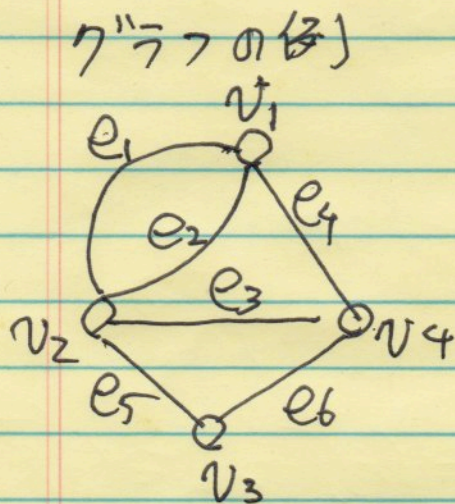 グラフの例
v1
e1
e4
e2
e3
v2
v4
e5
e6
v3